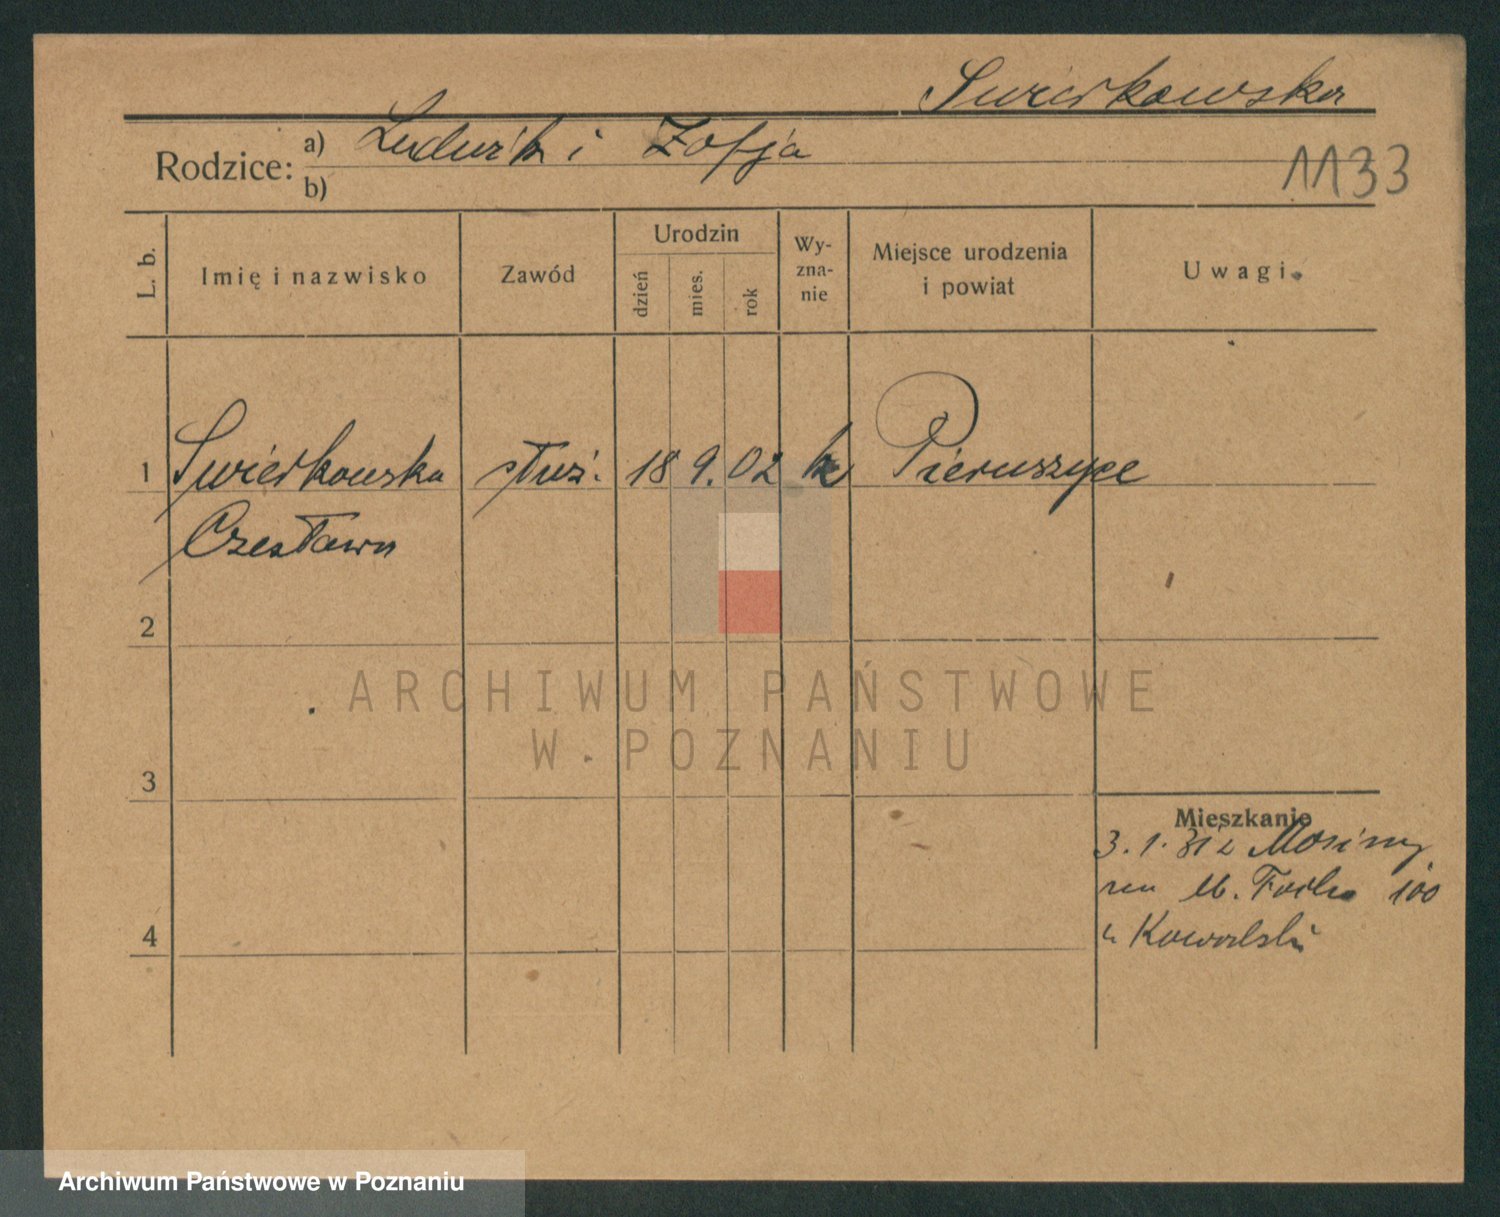 Swierkowska
Rodzice: a) Ludwik i Zofja
b)
1133
L. b.
Imię i nazwisko
Zawód
Urodzin
dzień
mies.
rok
Wy-
zna-
nie
Miejsce urodzenia
i powiat
Uwagi
1 Swierkowska służ. 18 9. 02 k Pieruszyce
Czesława
2
3
4
Mieszkanie
3. 1. 31 z Mosiny
100
Kowalski
ARCHIWUM PAŃSTWOWE
W POZNANIU
Archiwum Państwowe w Poznaniu